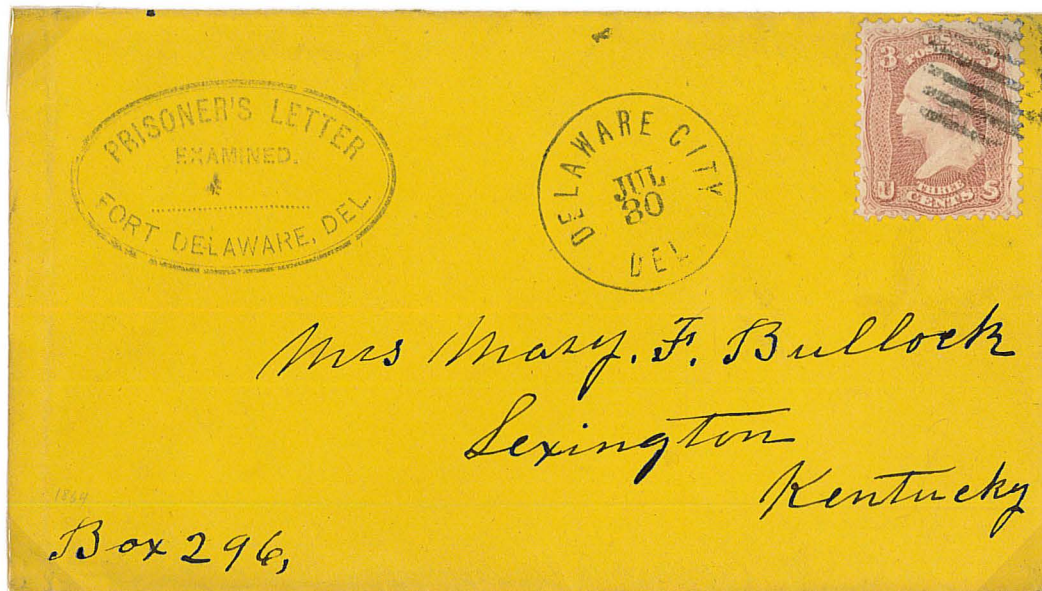 PRISONER'S LETTER
EXAMINED.
FORT DELAWARE, DEL.
DELAWARE CITY
JUL
30
DEL
3 3
U.S. POSTAGE
U S
THREE
CENTS
Mrs Mary. F. Bullock
Lexington
Kentucky
1864
Box 296,